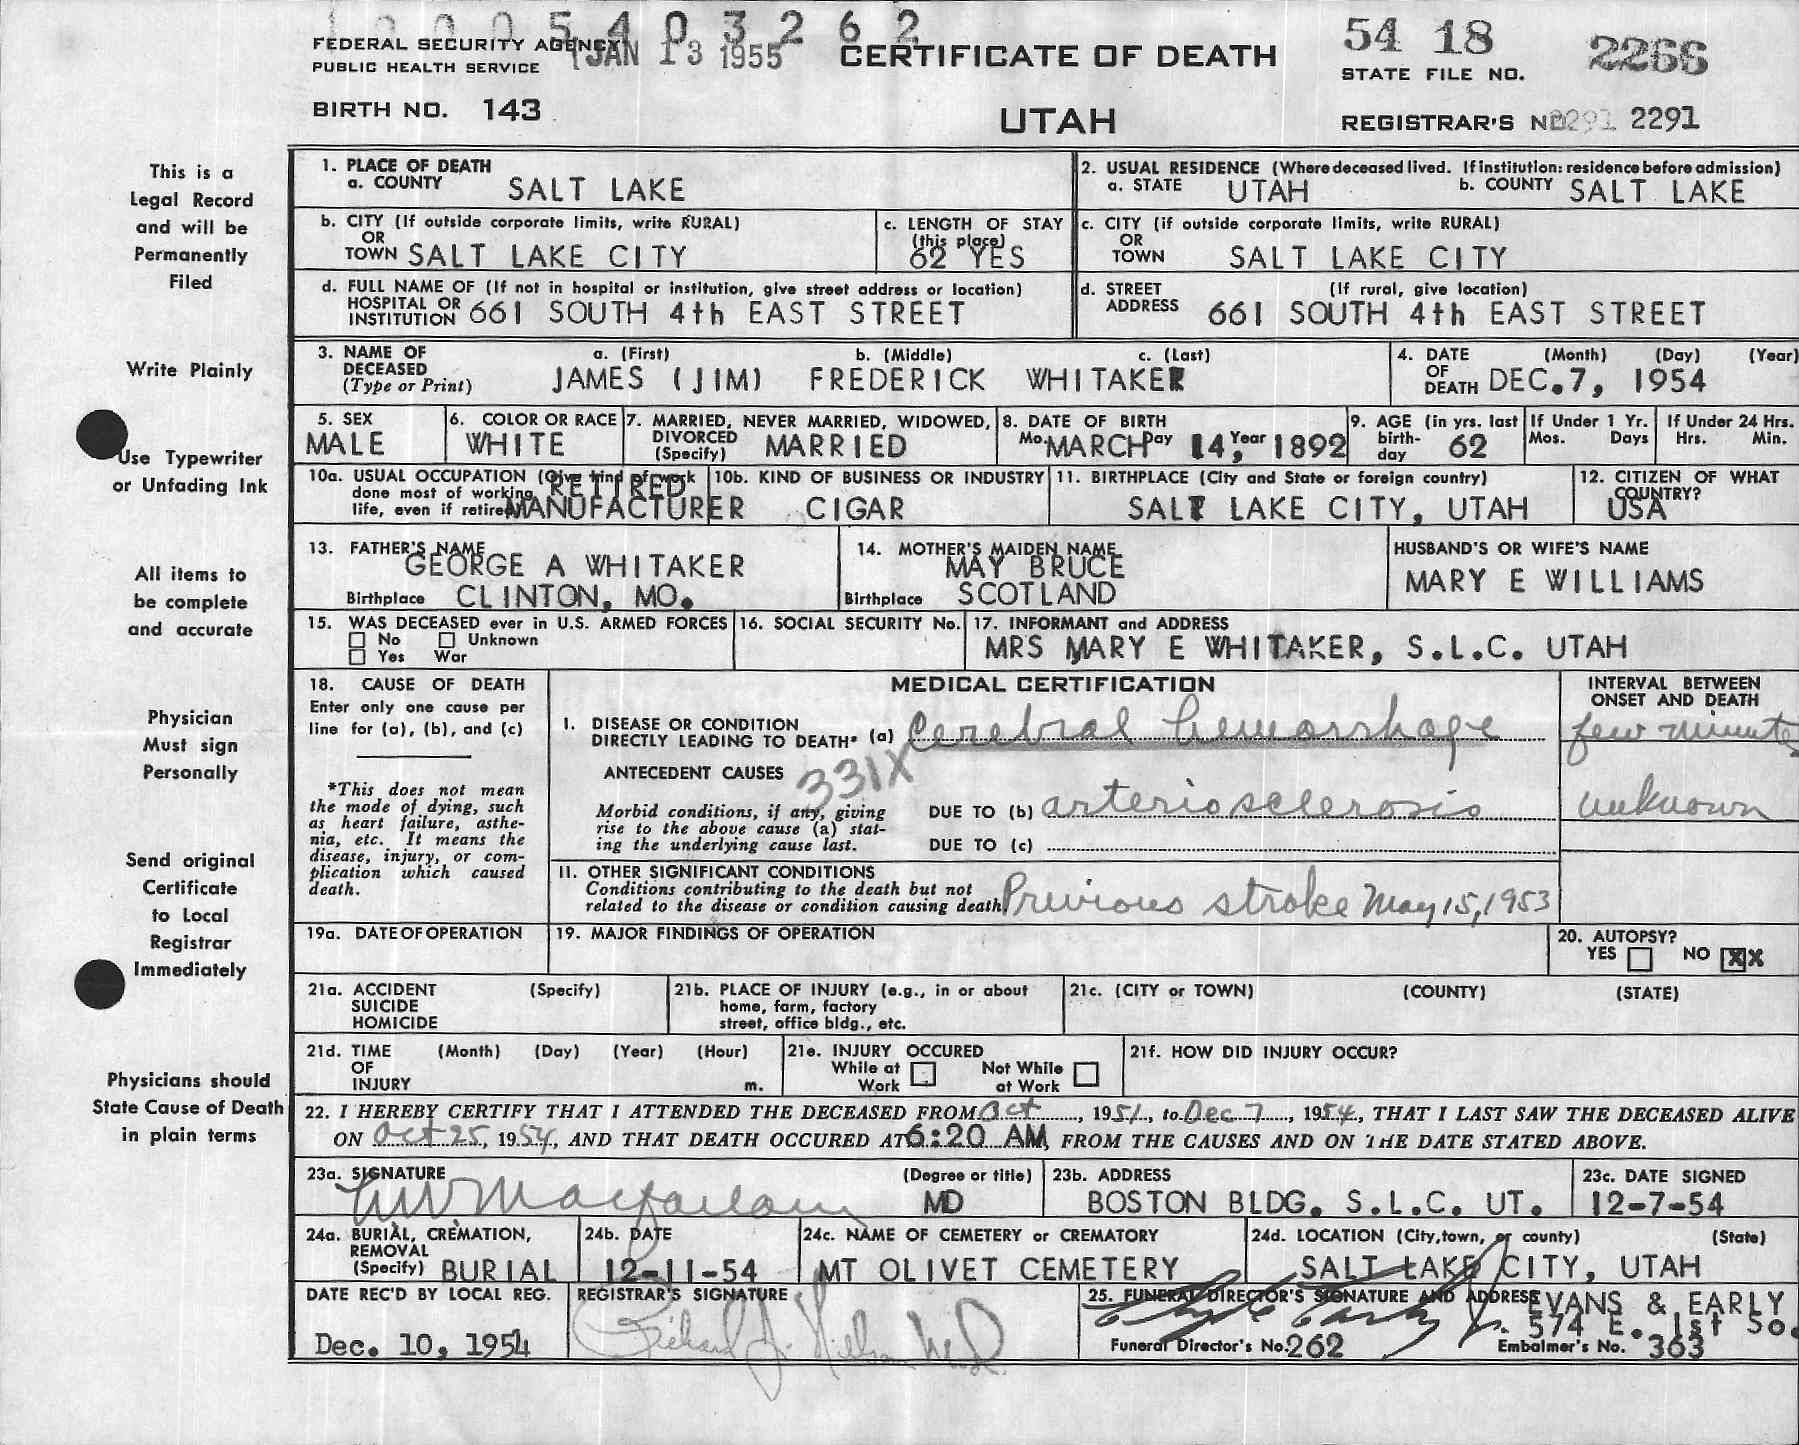 1 0 0 0 5 4 0 3 2 6 2
FEDERAL SECURITY AGENCY
PUBLIC HEALTH SERVICE
JAN 13 1955
CERTIFICATE OF DEATH
54 18
STATE FILE NO.
2266
BIRTH NO. 143
UTAH
REGISTRAR'S NO 2291 2291
This is a
Legal Record
and will be
Permanently
Filed
Write Plainly
Use Typewriter
or Unfading Ink
All items to
be complete
and accurate
Physician
Must sign
Personally
Send original
Certificate
to Local
Registrar
Immediately
Physicians should
State Cause of Death
in plain terms
1. PLACE OF DEATH
a. COUNTY SALT LAKE
2. USUAL RESIDENCE (Where deceased lived. If institution: residence before admission)
a. STATE UTAH b. COUNTY SALT LAKE
b. CITY (If outside corporate limits, write RURAL)
OR
TOWN SALT LAKE CITY
c. LENGTH OF STAY
(this place)
62 YES
c. CITY (if outside corporate limits, write RURAL)
OR
TOWN SALT LAKE CITY
d. FULL NAME OF (If not in hospital or institution, give street address or location)
HOSPITAL OR
INSTITUTION 661 SOUTH 4th EAST STREET
d. STREET (If rural, give location)
ADDRESS 661 SOUTH 4th EAST STREET
3. NAME OF a. (First) b. (Middle) c. (Last)
DECEASED
(Type or Print) JAMES (JIM) FREDERICK WHITAKER
4. DATE (Month) (Day) (Year)
OF
DEATH DEC. 7, 1954
5. SEX
MALE
6. COLOR OR RACE
WHITE
7. MARRIED, NEVER MARRIED, WIDOWED,
DIVORCED
(Specify) MARRIED
8. DATE OF BIRTH
Mo. MARCH Day 14, Year 1892
9. AGE (in yrs. last
birth-
day 62
If Under 1 Yr.
Mos. Days
If Under 24 Hrs.
Hrs. Min.
10a. USUAL OCCUPATION (Give kind of work
done most of working
life, even if retired
RETIRED
MANUFACTURER
10b. KIND OF BUSINESS OR INDUSTRY
CIGAR
11. BIRTHPLACE (City and State or foreign country)
SALT LAKE CITY, UTAH
12. CITIZEN OF WHAT
COUNTRY?
USA
13. FATHER'S NAME
GEORGE A WHITAKER
Birthplace CLINTON, MO.
14. MOTHER'S MAIDEN NAME
MAY BRUCE
Birthplace SCOTLAND
HUSBAND'S OR WIFE'S NAME
MARY E WILLIAMS
15. WAS DECEASED ever in U.S. ARMED FORCES
No Unknown
Yes War
16. SOCIAL SECURITY No.
17. INFORMANT and ADDRESS
MRS MARY E WHITAKER, S.L.C. UTAH
18. CAUSE OF DEATH
Enter only one cause per
line for (a), (b), and (c)
*This does not mean
the mode of dying, such
as heart failure, asthe-
nia, etc. It means the
disease, injury, or com-
plication which caused
death.
MEDICAL CERTIFICATION
INTERVAL BETWEEN
ONSET AND DEATH
I. DISEASE OR CONDITION
DIRECTLY LEADING TO DEATH* (a) Cerebral hemorrhage few minutes
ANTECEDENT CAUSES 331X
Morbid conditions, if any, giving
rise to the above cause (a) stat-
ing the underlying cause last.
DUE TO (b) arteriosclerosis unknown
DUE TO (c)
II. OTHER SIGNIFICANT CONDITIONS
Conditions contributing to the death but not
related to the disease or condition causing death. Previous stroke May 15, 1953
19a. DATE OF OPERATION
19. MAJOR FINDINGS OF OPERATION
20. AUTOPSY?
YES NO XX
21a. ACCIDENT (Specify)
SUICIDE
HOMICIDE
21b. PLACE OF INJURY (e.g., in or about
home, farm, factory
street, office bldg., etc.
21c. (CITY or TOWN) (COUNTY) (STATE)
21d. TIME (Month) (Day) (Year) (Hour)
OF
INJURY m.
21e. INJURY OCCURED
While at Work Not While at Work
21f. HOW DID INJURY OCCUR?
22. I HEREBY CERTIFY THAT I ATTENDED THE DECEASED FROM Oct, 1951, to Dec 7, 1954, THAT I LAST SAW THE DECEASED ALIVE
ON Oct 25, 1954, AND THAT DEATH OCCURED AT 6:20 AM, FROM THE CAUSES AND ON THE DATE STATED ABOVE.
23a. SIGNATURE (Degree or title)
Macfarlane MD
23b. ADDRESS
BOSTON BLDG. S.L.C. UT.
23c. DATE SIGNED
12-7-54
24a. BURIAL, CREMATION,
REMOVAL
(Specify) BURIAL
24b. DATE
12-11-54
24c. NAME OF CEMETERY or CREMATORY
MT OLIVET CEMETERY
24d. LOCATION (City, town, or county) (State)
SALT LAKE CITY, UTAH
DATE REC'D BY LOCAL REG.
Dec. 10, 1954
REGISTRAR'S SIGNATURE
Richard J.
25. FUNERAL DIRECTOR'S SIGNATURE AND ADDRESS
EVANS & EARLY
574 E. 1st So.
Funeral Director's No. 262
Embalmer's No. 363